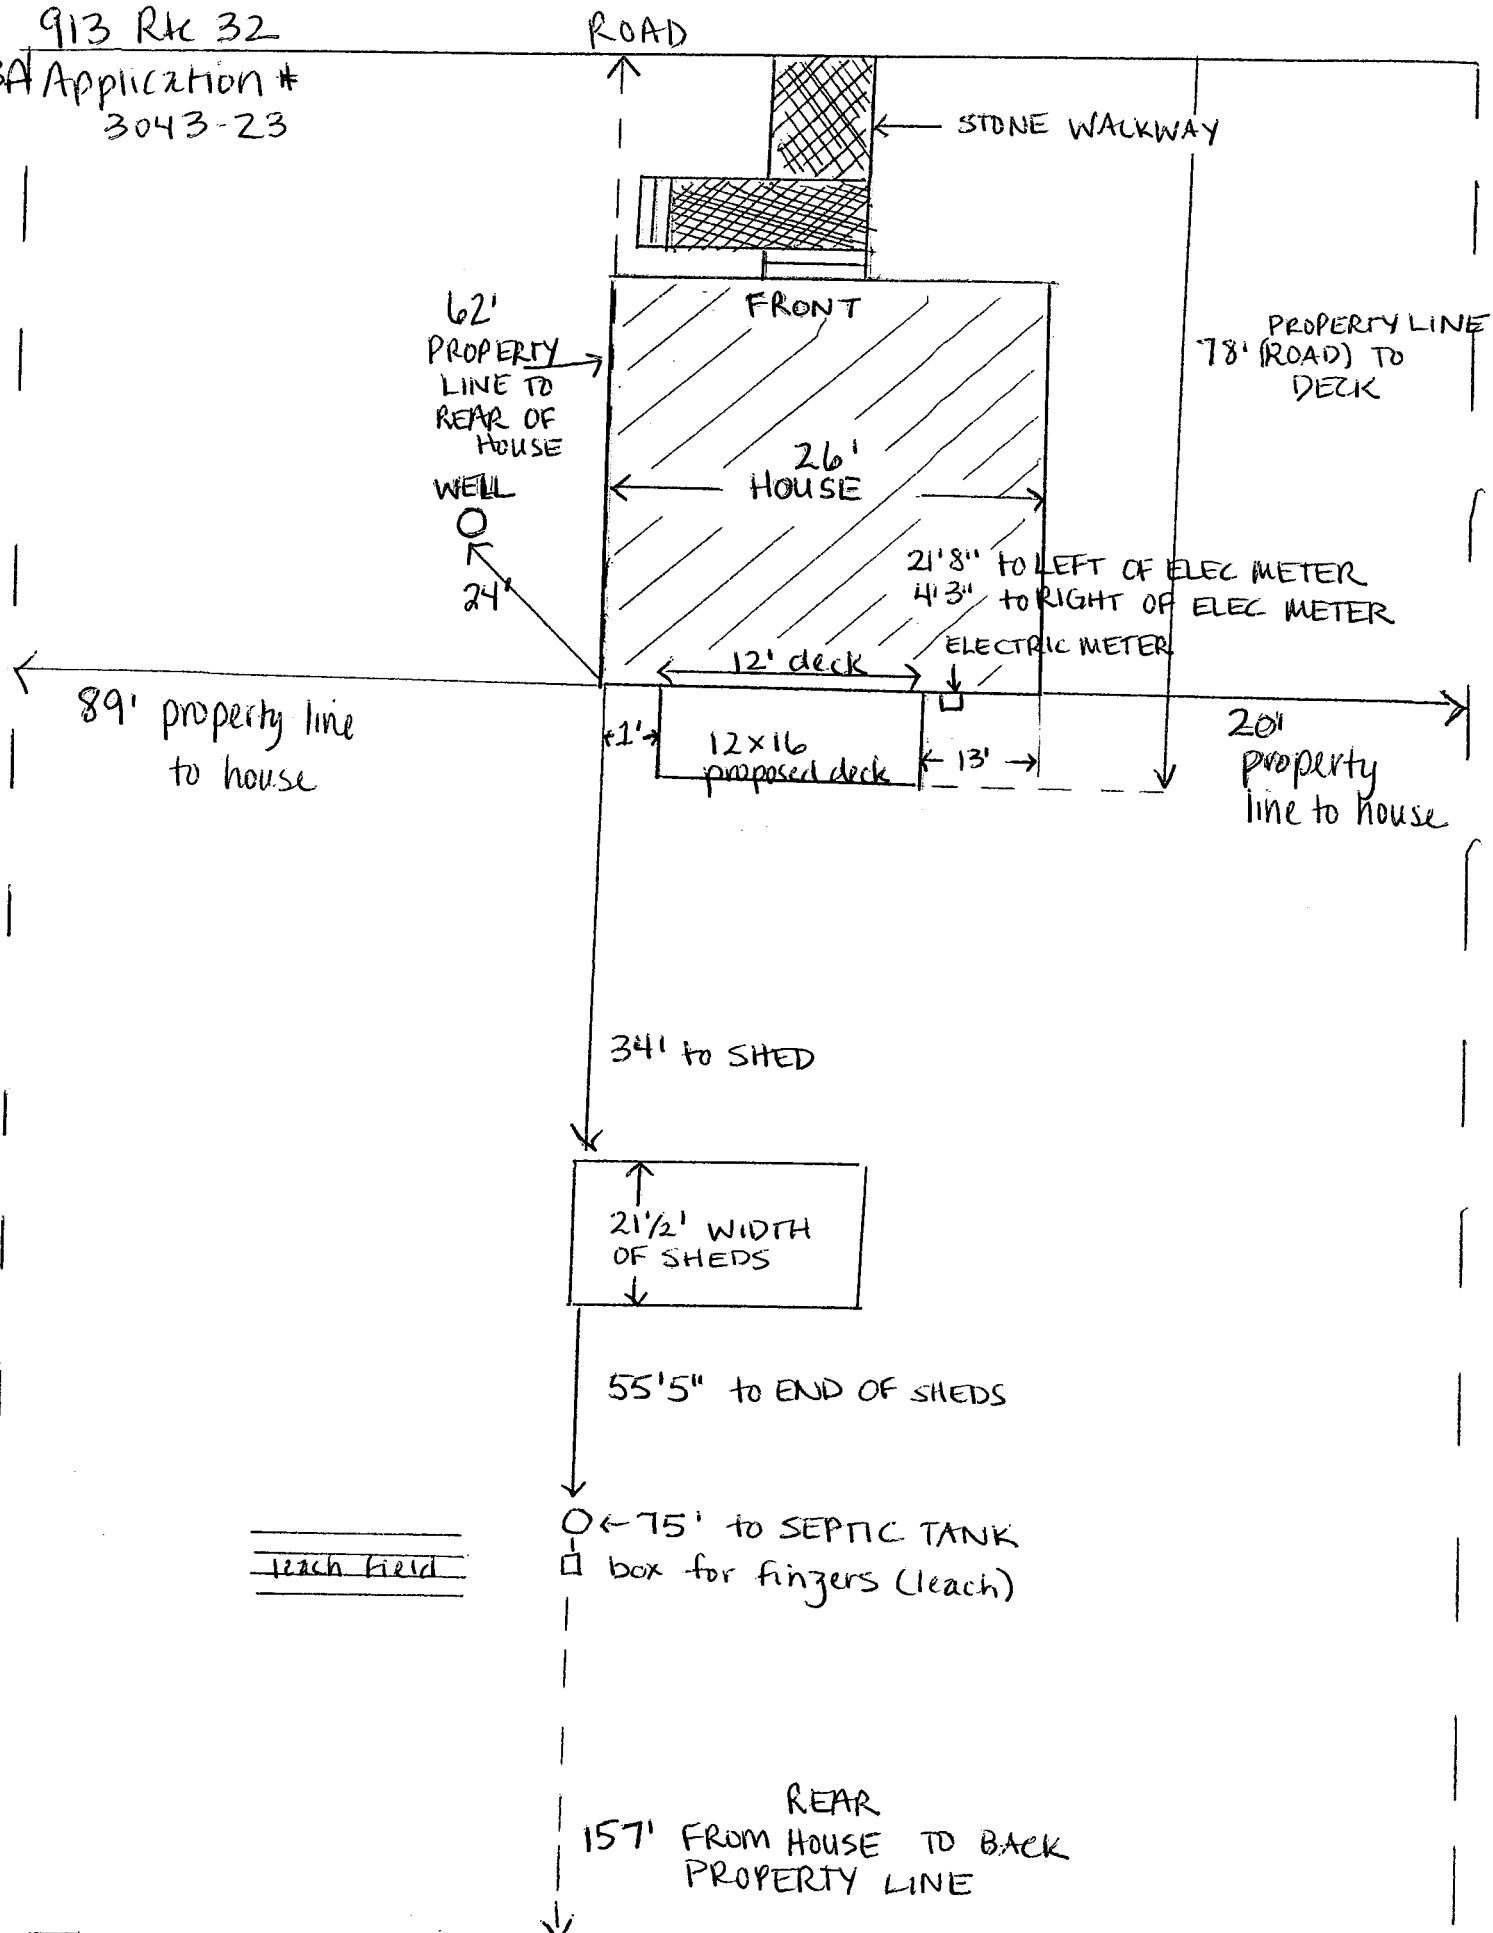 913 Rte 32
ROAD
A Application #
3043-23
STONE WALKWAY
FRONT
62'
PROPERTY
LINE TO
REAR OF
HOUSE
PROPERTY LINE
78' (ROAD) TO
DECK
26'
HOUSE
WELL
24'
21'8" to LEFT OF ELEC METER
4'3" to RIGHT OF ELEC METER
ELECTRIC METER
12' deck
89' property line
to house
1'
12x16
proposed deck
13'
20'
property
line to house
34' to SHED
21 1/2' WIDTH
OF SHEDS
55'5" to END OF SHEDS
75' to SEPTIC TANK
leach field
box for fingers (leach)
REAR
157' FROM HOUSE TO BACK
PROPERTY LINE